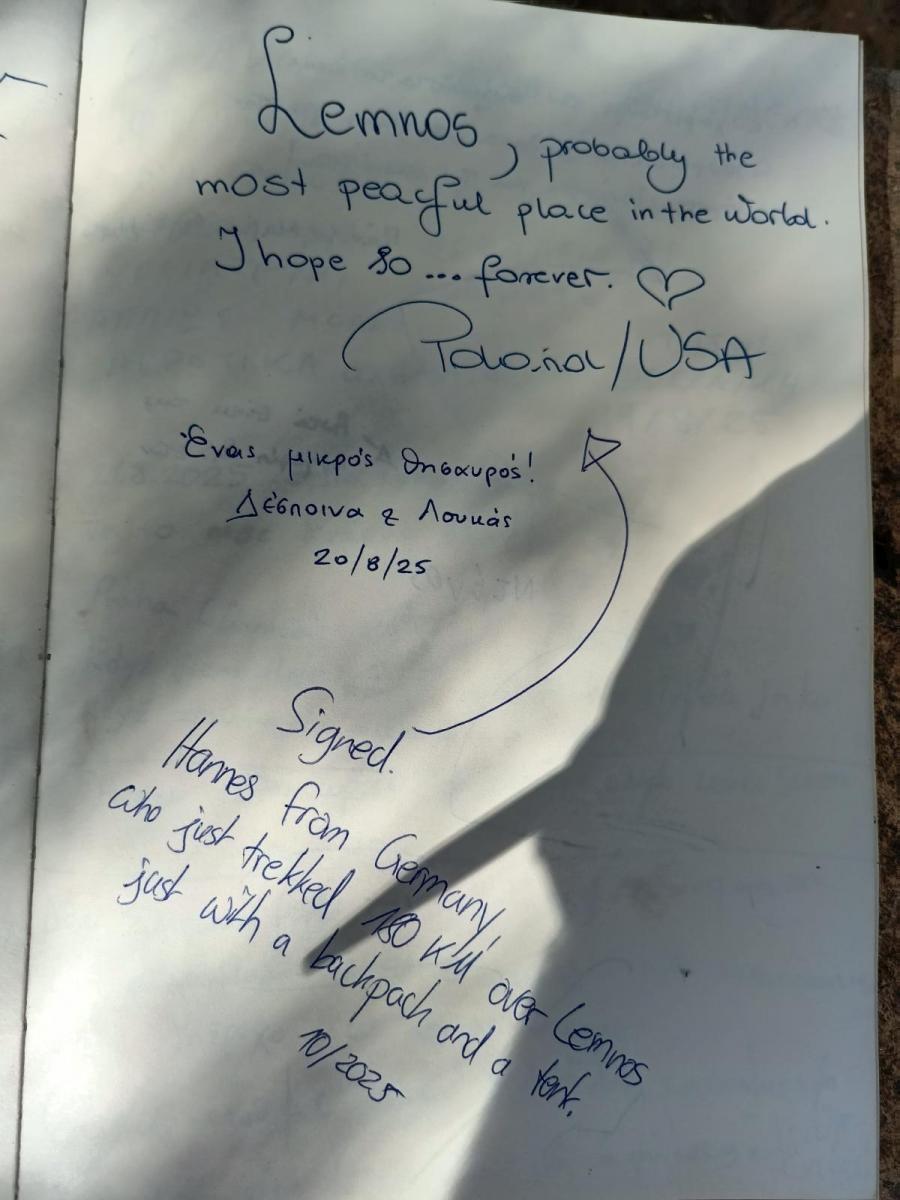 Lemnos, probably the
most peacful place in the World.
I hope so... forever. ♡
/USA
Ένας μικρός θησαυρός!
Δέσποινα & Λουκάς
20/8/25
Signed.
Hannes from Germany,
who just trekked 180 KM over Lemnos
just with a backpack and a tent.
10/2025